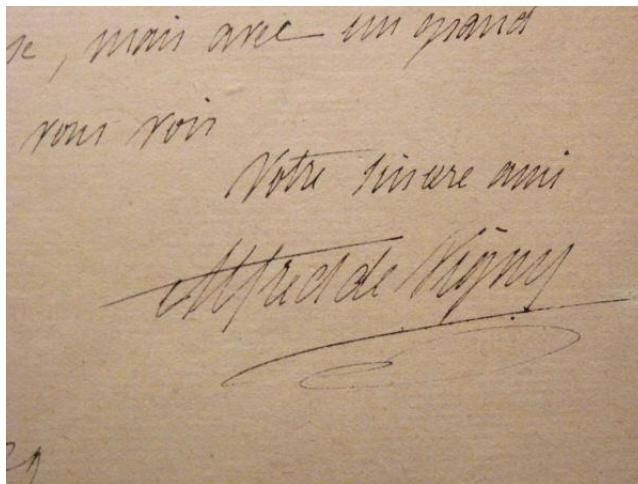 , mais avec un grand
vous voir
Votre sincere ami
Alfred de Vigny
29